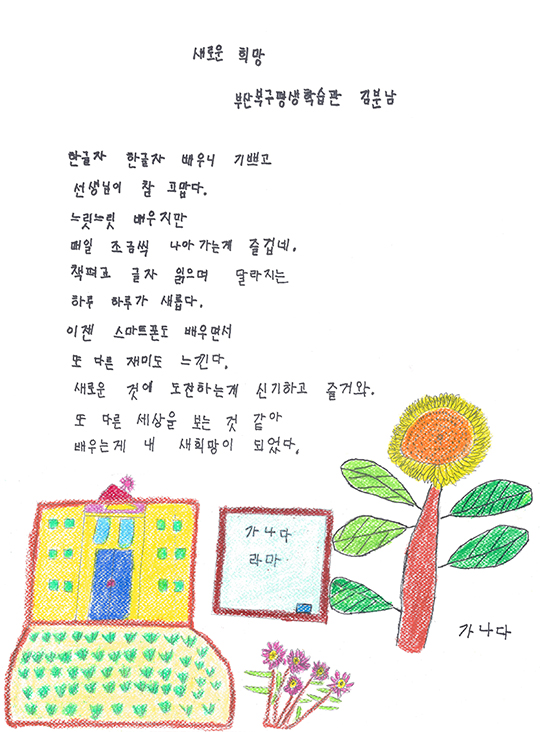 새로운 희망
부산북구평생학습관 김분남
한글자 한글자 배우니 기쁘고
선생님이 참 고맙다.
느릿느릿 배우지만
매일 조금씩 나아가는게 즐겁네.
책펴고 글자 읽으며 달라지는
하루 하루가 새롭다.
이젠 스마트폰도 배우면서
또 다른 재미도 느낀다.
새로운 것에 도전하는게 신기하고 즐거와.
또 다른 세상을 보는 것 같아
배우는게 내 새희망이 되었다.
가나다
라마
가나다